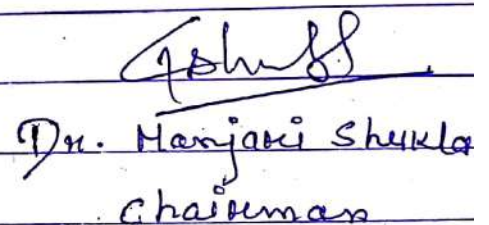 Dr. Manjari Shukla
Chairman